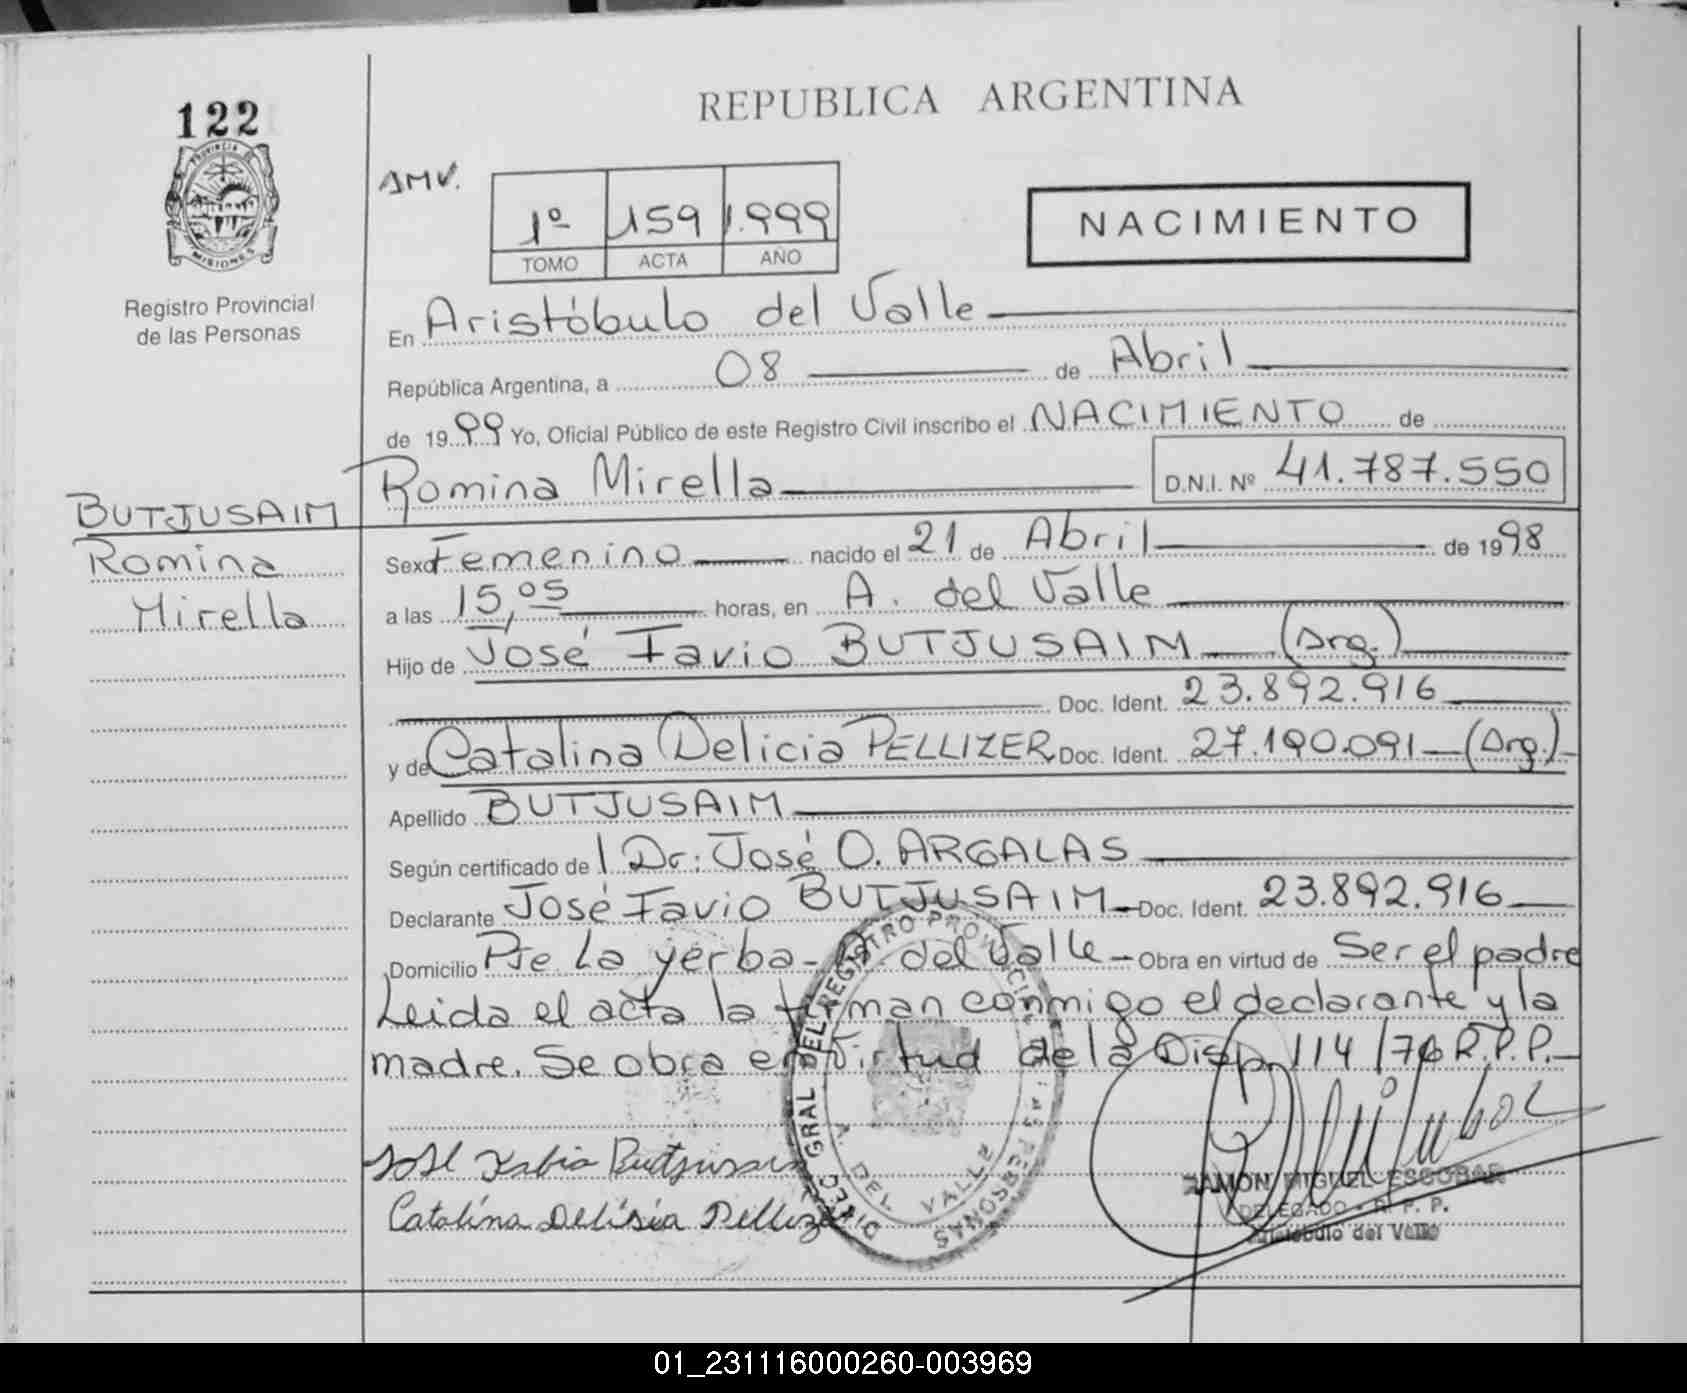 REPUBLICA ARGENTINA
122
PROVINCIA DE
MISIONES
Registro Provincial
de las Personas
AMV.
1º 159 1.999
TOMO ACTA AÑO
NACIMIENTO
En Aristóbulo del Valle
República Argentina, a 08 de Abril
de 1999 Yo, Oficial Público de este Registro Civil inscribo el NACIMIENTO de
Romina Mirella D.N.I. Nº 41.787.550
BUTJUSAIM
Romina
Mirella
Sexo Femenino nacido el 21 de Abril de 1998
a las 15,05 horas, en A. del Valle
Hijo de José Favio BUTJUSAIM (Arg.)
Doc. Ident. 23.892.916
y de Catalina Delicia PELLIZER Doc. Ident. 27.190.091 (Arg.)
Apellido BUTJUSAIM
Según certificado de Dr. José O. ARGALAS
Declarante José Favio BUTJUSAIM Doc. Ident. 23.892.916
Domicilio Pje La yerba - A. del Valle - Obra en virtud de Ser el padre
Leida el acta la firman conmigo el declarante y la
madre. Se obra en virtud de la Disp. 114/76 R.P.P.
DIREC. GRAL DEL REGISTRO PROVINCIAL DE LAS PERSONAS
A. DEL VALLE
José Fabio Butjusaim
Catalína Delisia Pellizer
RAMON MIGUEL ESCOBAR
DELEGADO - R. P. P.
Aristobulo del Valle
01_231116000260-003969